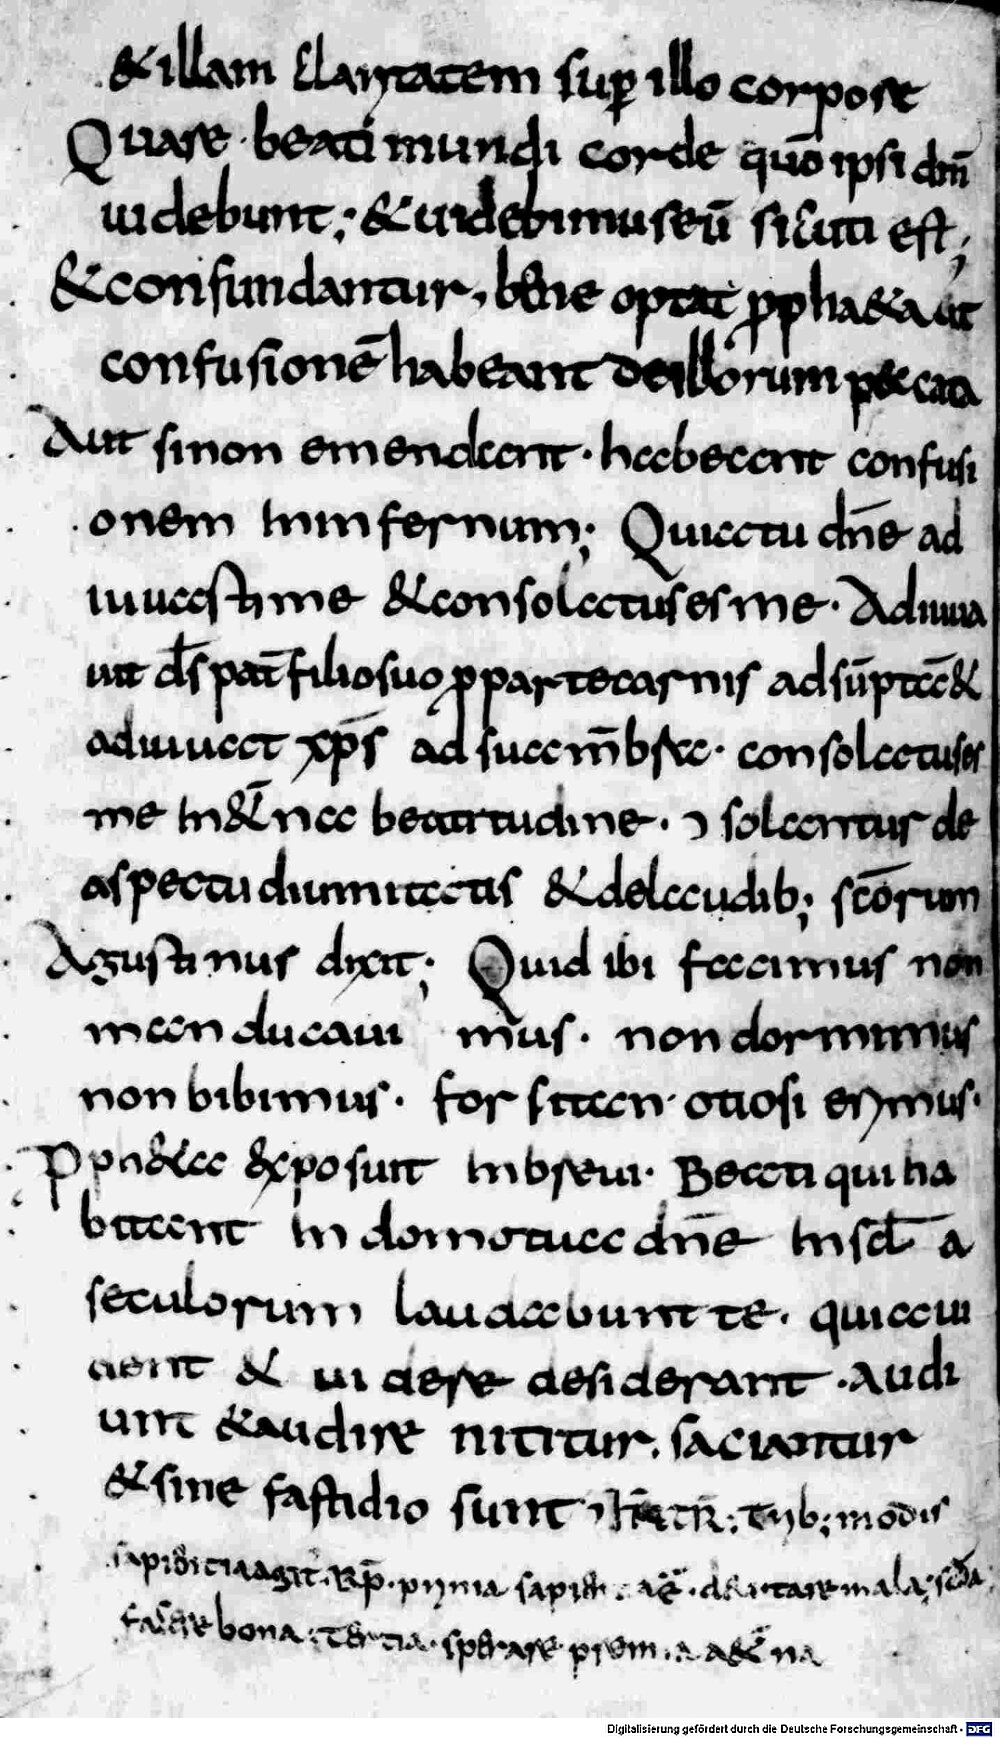 &illam claritatem sup̱ illo corpore
Quare · beati mundi corde quō ipsi dm̄
uidebunt; & uidebimus eū sicuti est;
& confundantur, bene optat p̱pha&a ut
confusionē habeant de illorum peccata
Aut si non emendant · habeant confusi
onem in infernum; Quia tu dn̄e ad
iuuasti me & consolatus es me · Adiuua
uit ds̄ pat̄ filio suo p̱ parte carnis adsūpta &
adiuuat xp̄s ad sua mēbra · consolatus es
me in &̄na beatitudine · solantur de
aspectu diuinitatis & de laudib; scōrum
Agustinus dixit; Quid ibi facimus non
manducaui m̄us · non dormimus
non bibimus · forsitan otiosi erimus ·
P̱ph&a exposuit in breui · Beati qui ha
bitant in domo tua dn̄e in scl̄a
seculorum laudabunt te · qui a ui
dent & uidere desiderant · audi
unt & audire nituntur · saciantur
& sine fastidio sunt tribus modis
sapientia agit · Rp̄ · prima sapien · declitare mala; scd̄a
facere bona · tertia · sperare premia a&̄na
Digitalisierung gefördert durch die Deutsche Forschungsgemeinschaft - DFG